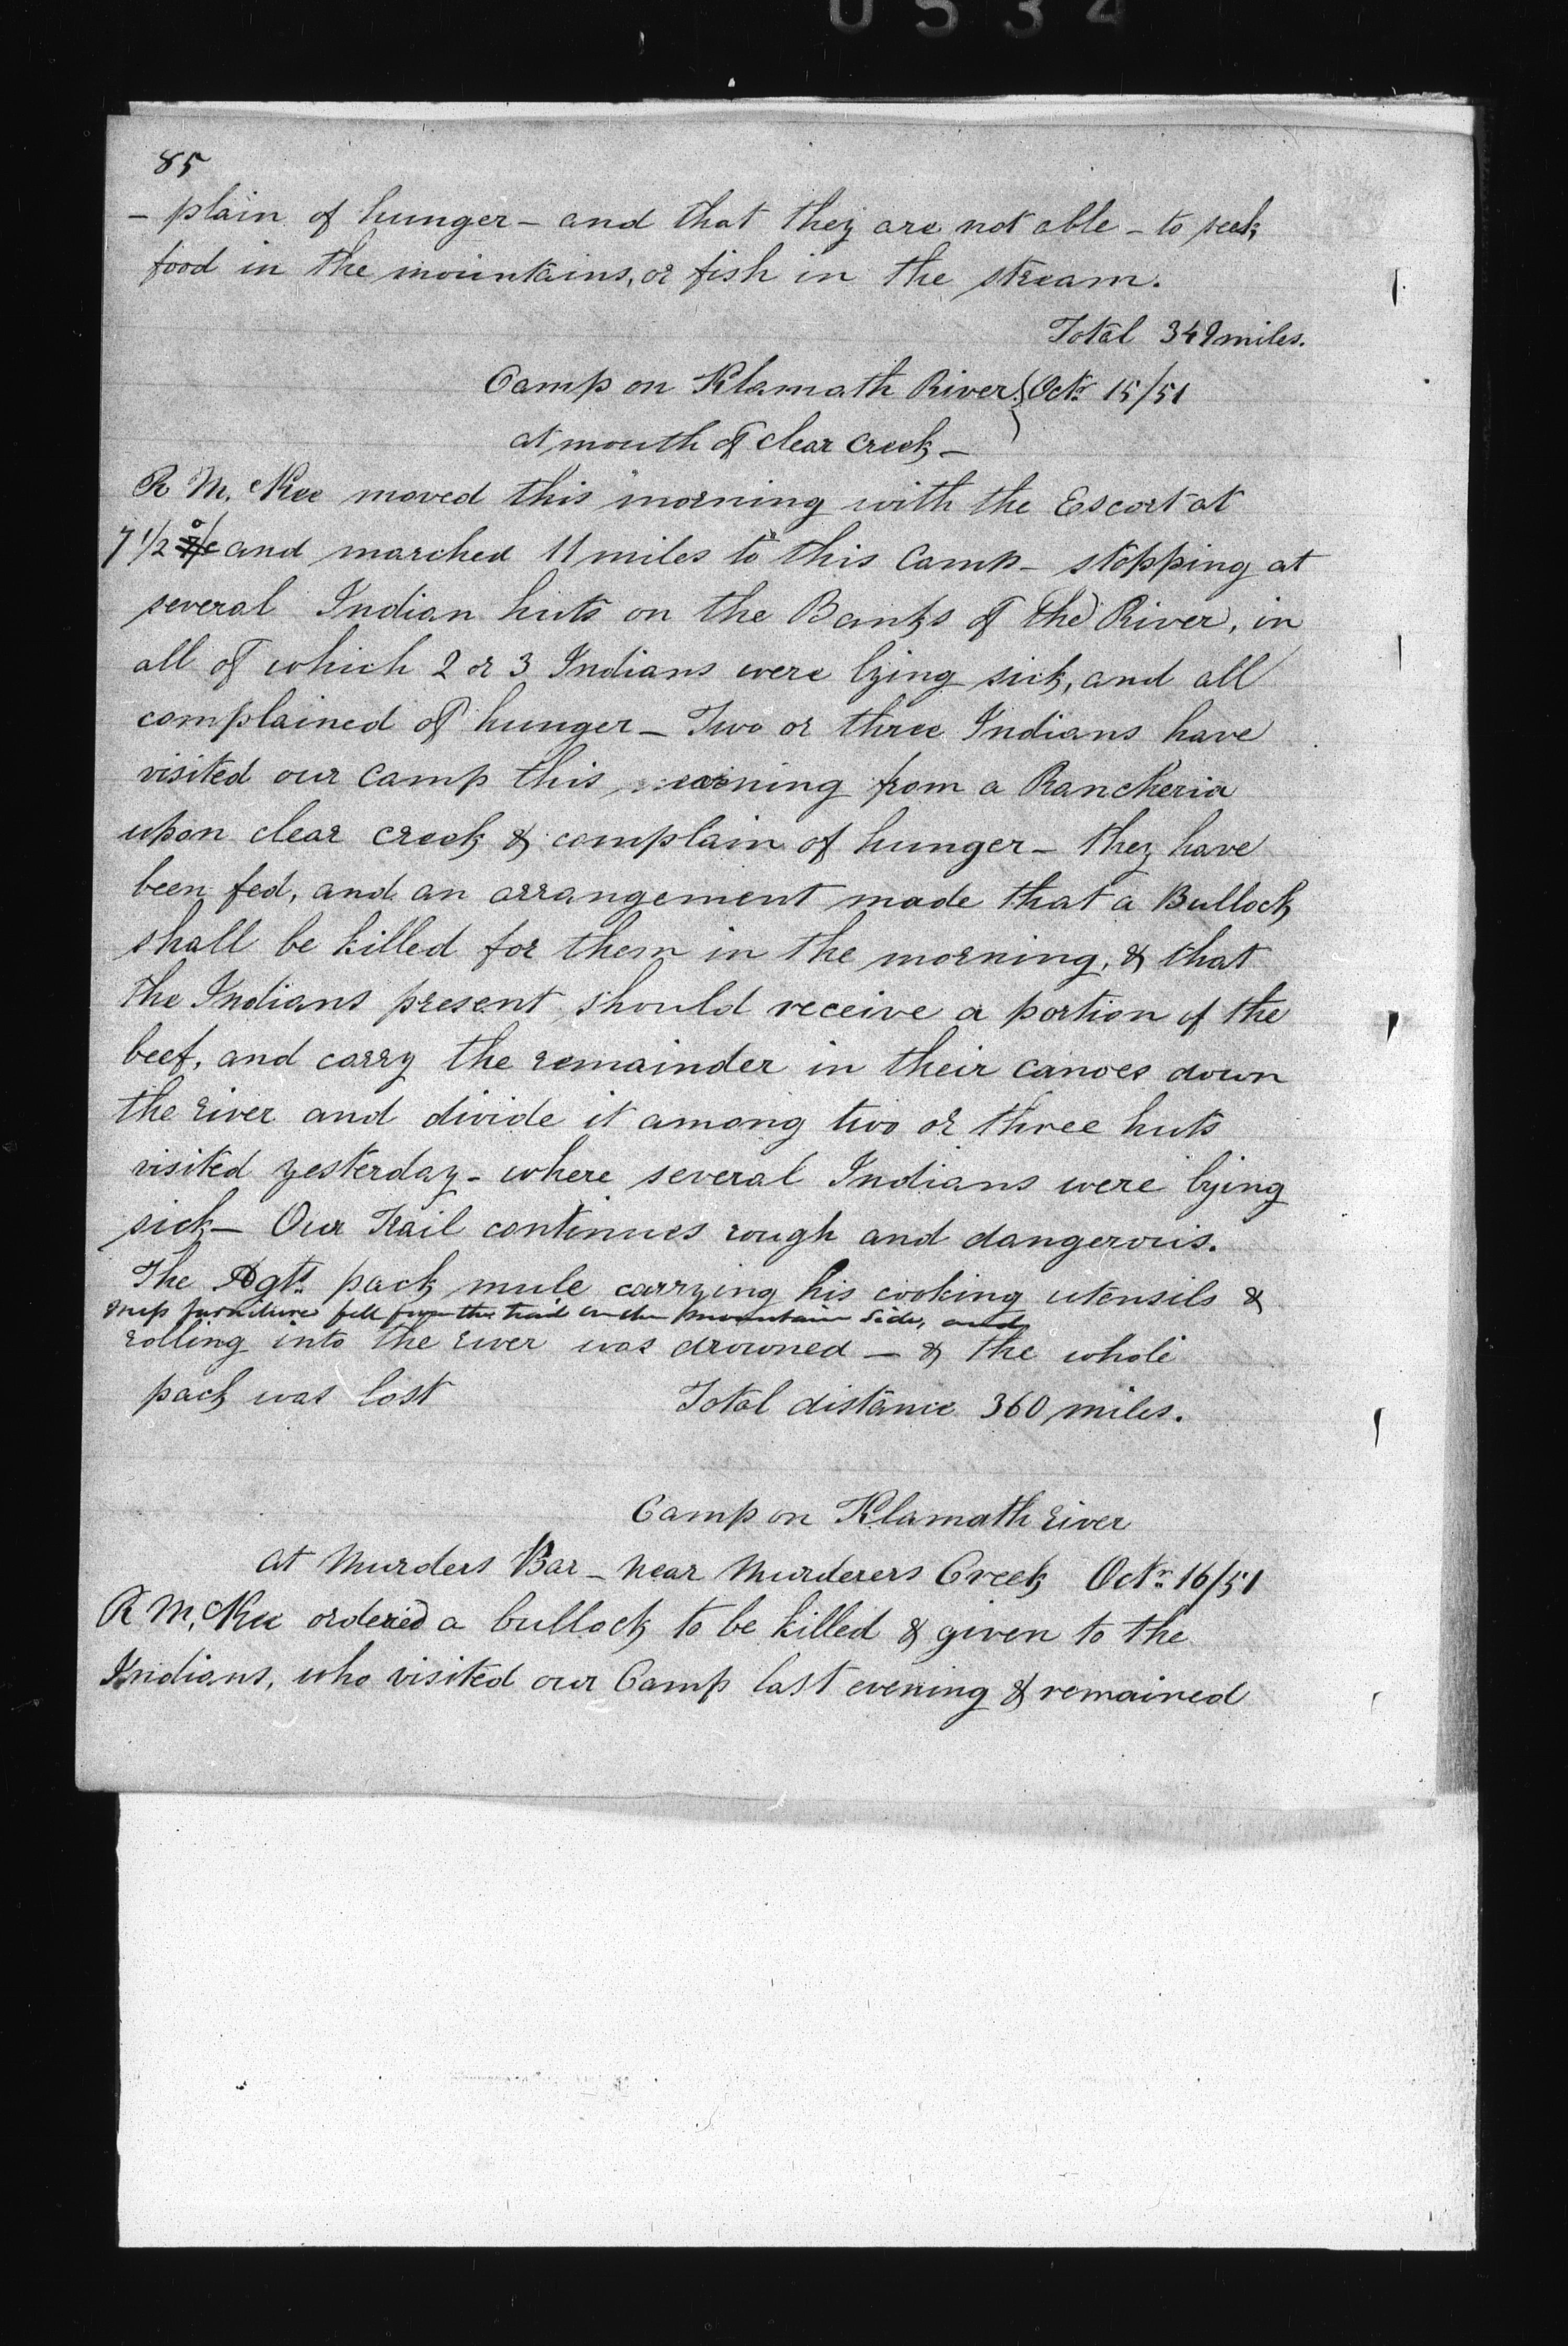 0534
85
- plain of hunger - and that they are not able - to seek
food in the mountains, or fish in the stream.
Total 349 miles.
Camp on Klamath River } Octr 15/51
at mouth of clear creek -
R McKee moved this morning with the Escort at
7 1/2 o/c and marched 11 miles to this Camp - stopping at
several Indian huts on the Banks of the River, in
all of which 2 or 3 Indians were lying sick, and all
complained of hunger - Two or three Indians have
visited our camp this morning from a Rancheria
upon clear creek & complain of hunger - they have
been fed, and an arrangement made that a Bullock
shall be killed for them in the morning, & that
the Indians present, should receive a portion of the
beef, and carry the remainder in their canoes down
the river and divide it among two or three huts
visited yesterday - where several Indians were lying
sick - Our Trail continues rough and dangerous.
The Agts pack mule carrying his cooking utensils &
mess furniture fell from the trail on the mountain side, and
rolling into the river was drowned - & the whole
pack was lost Total distance 360 miles.
Camp on Klamath river
at Murders Bar - near Murderers Creek Octr 16/51
R McKee ordered a bullock to be killed & given to the
Indians, who visited our Camp last evening & remained